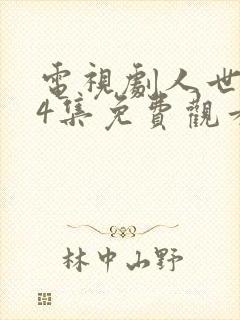 電視劇人世
4集免費觀
林中山野